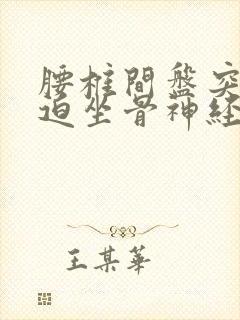 腰椎間盤突
迫坐骨神経
王某華